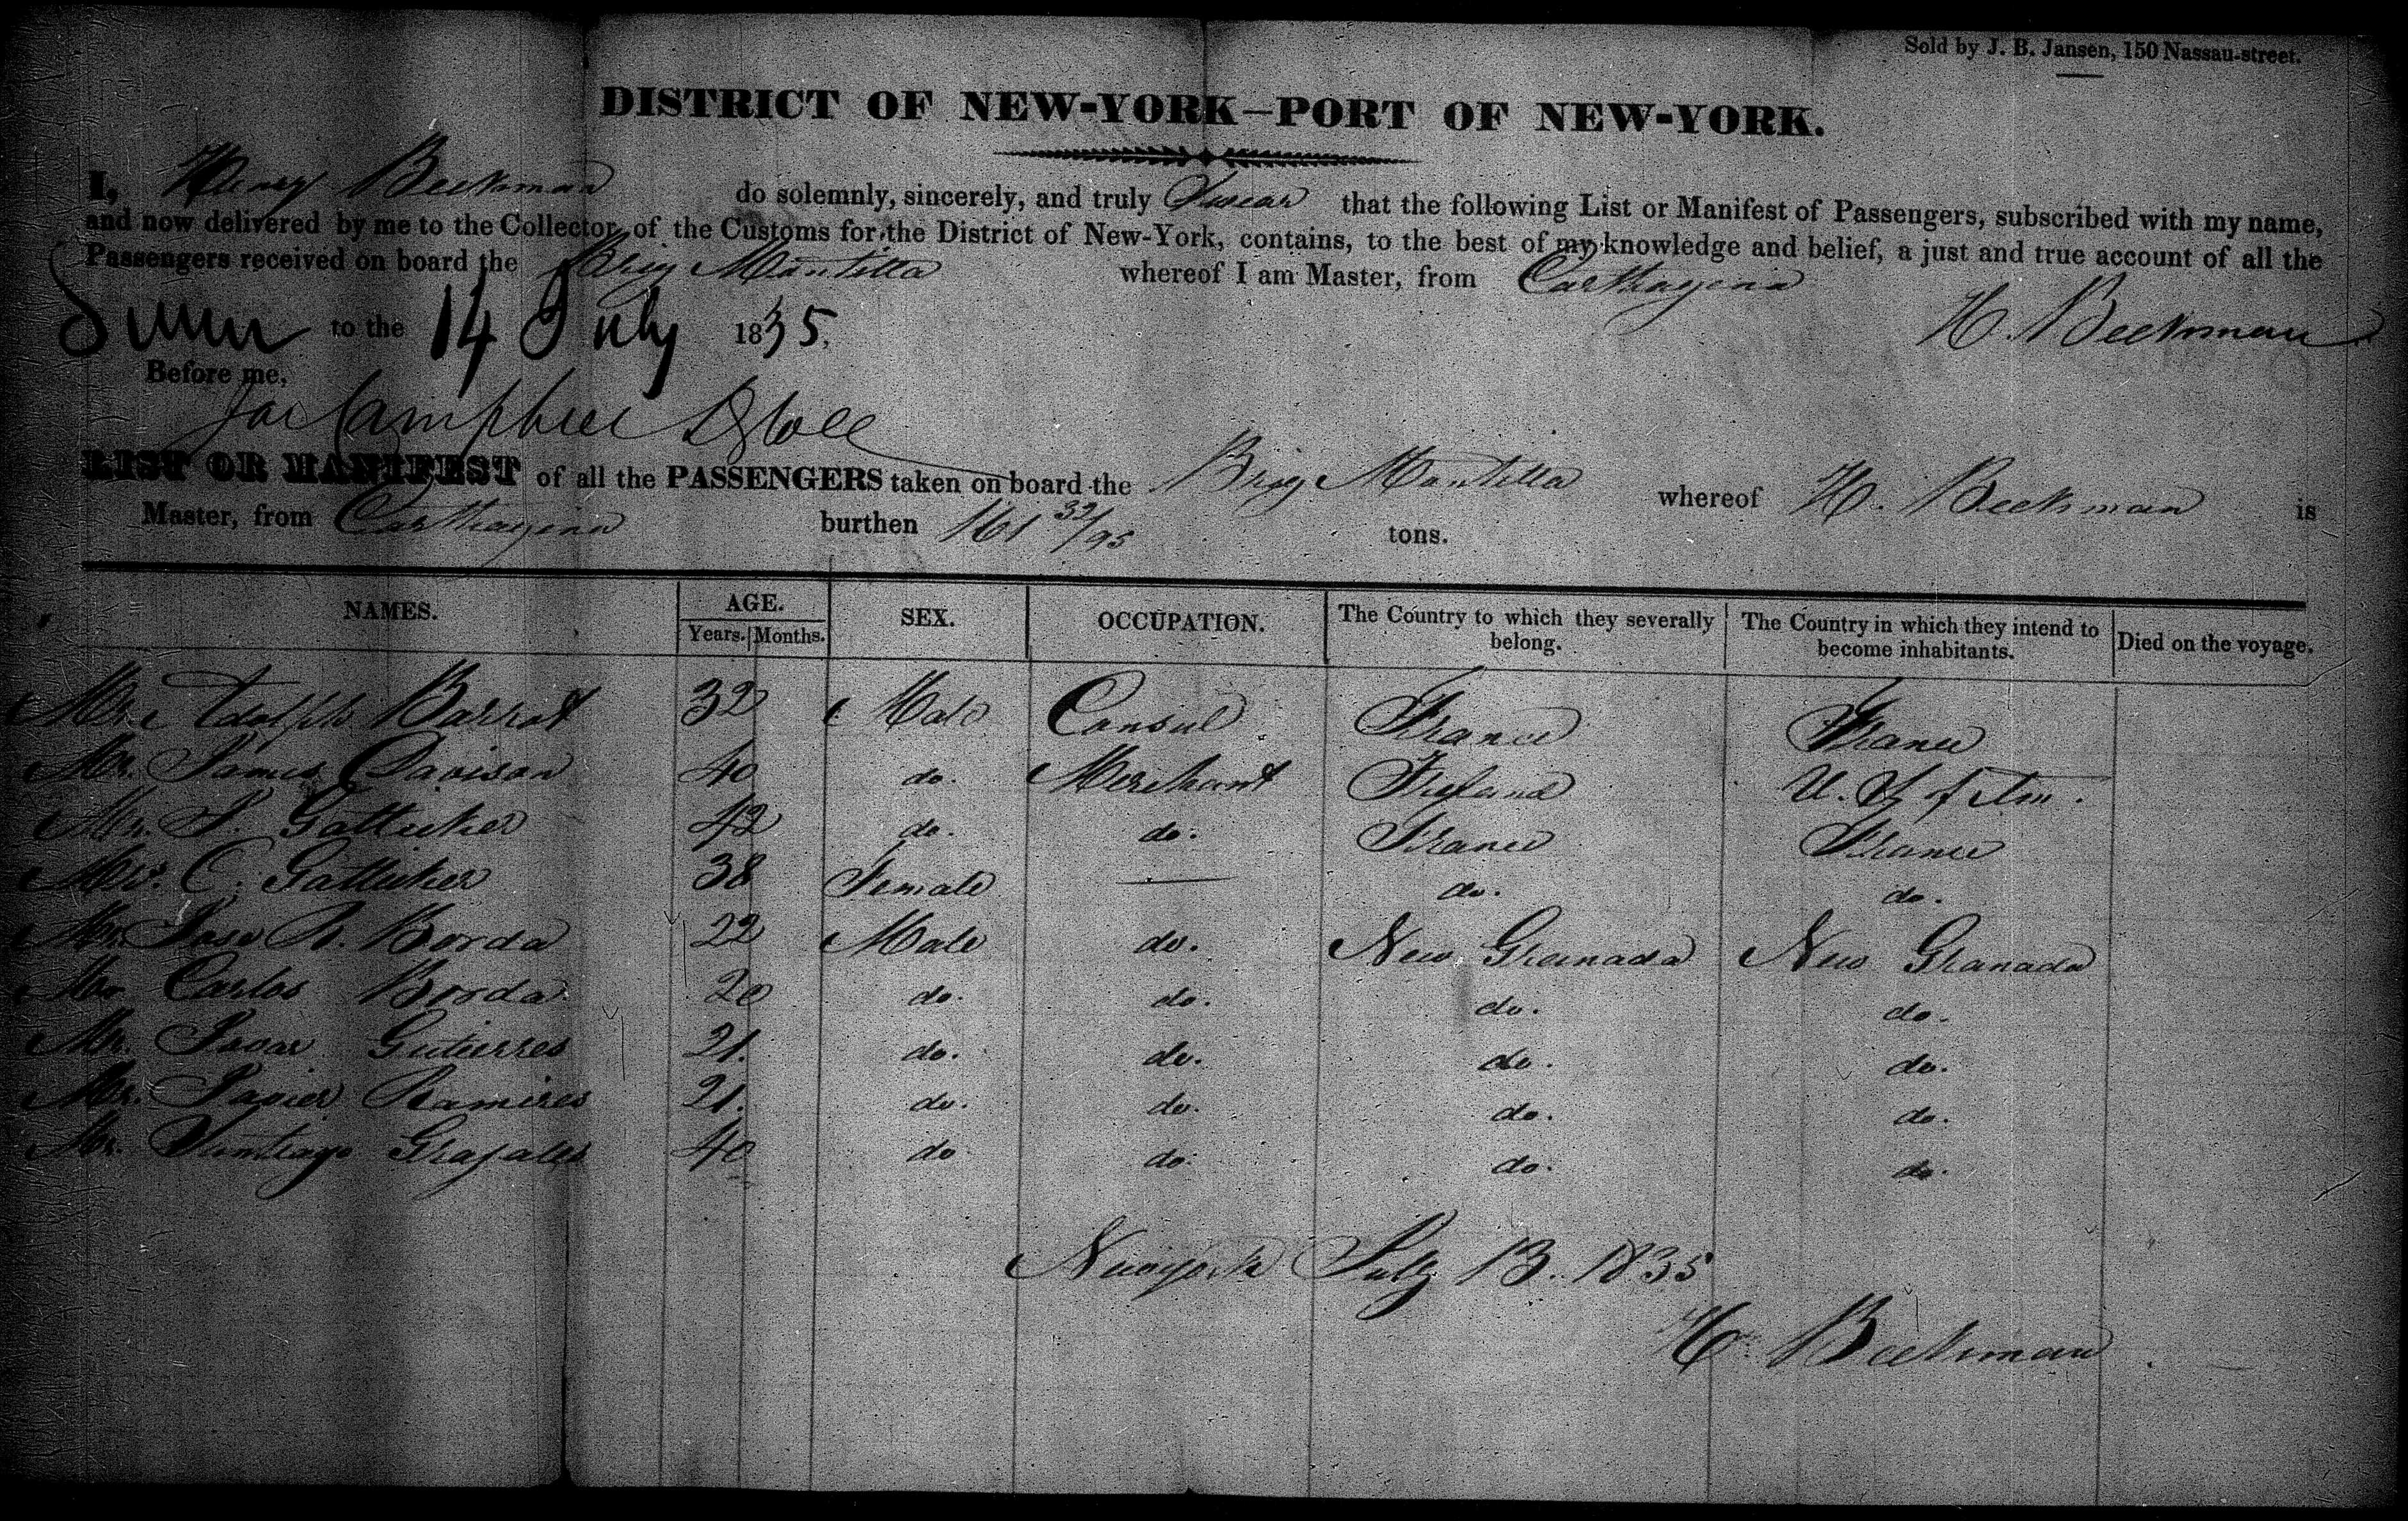 Sold by J. B. Jansen, 150 Nassau-street.
DISTRICT OF NEW-YORK—PORT OF NEW-YORK.
I, Henry Beekman do solemnly, sincerely, and truly Swear that the following List or Manifest of Passengers, subscribed with my name,
and now delivered by me to the Collector of the Customs for the District of New-York, contains, to the best of my knowledge and belief, a just and true account of all the
Passengers received on board the Brig Mantilla whereof I am Master, from Carthagena
H. Beekman
Sworn to the 14 July 1835.
Before me,
Campbell
LIST OR MANIFEST of all the PASSENGERS taken on board the Brig Mantilla whereof H. Beekman is
Master, from Carthagena burthen 161 32/95 tons.
NAMES. AGE. SEX. OCCUPATION. The Country to which they severally belong. The Country in which they intend to become inhabitants. Died on the voyage.
Years. Months.
Mr. Adolph Barrot 32 Male Consul France France
Mr. James Davison 40 do. Merchant Ireland U. S. of Am.
Mr. J. Gallicher 42 do. do. France France
Mrs. C. Gallicher 38 Female — do. do.
Mr. Jose R. Borda 22 Male do. New Grenada New Granada
Mr. Carlos Borda 20 do. do. do. do.
Mr. Gutierres 21. do. do. do. do.
Mr. Javier Ramires 21. do. do. do. do.
Mr. Santiago Grajales 40 do do. do. do.
Newyork July 13. 1835
H. Beekman